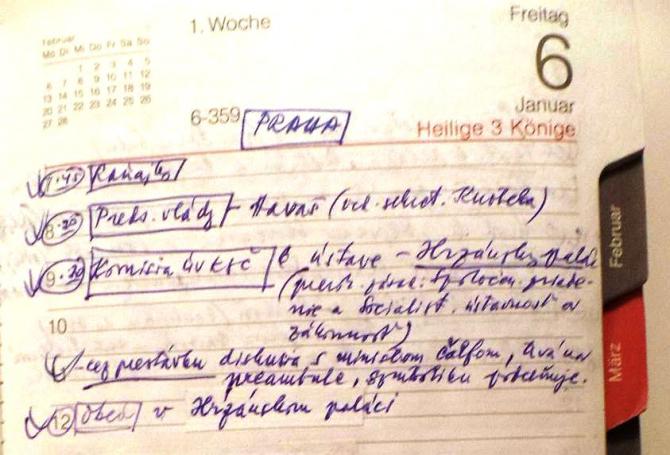 Februar
Mo Di Mi Do Fr Sa So
1 2 3 4 5
6 7 8 9 10 11 12
13 14 15 16 17 18 19
20 21 22 23 24 25 26
27 28
1. Woche
Freitag
6
Januar
6-359 PRAHA
Heilige 3 Könige
7.45 Raňajky
8.30 Preds. vlády - (ved. sekret.
9.30 Komisia ÚV KSČ k ústave - Hrzánsky palác
(
nie a Socialist. ústavnosť a
zákonnosť)
10
- cez prestávku diskusia s ministrom Čalfom,
preambule, symboliku
12 Obed v Hrzánskom paláci
Februar
März